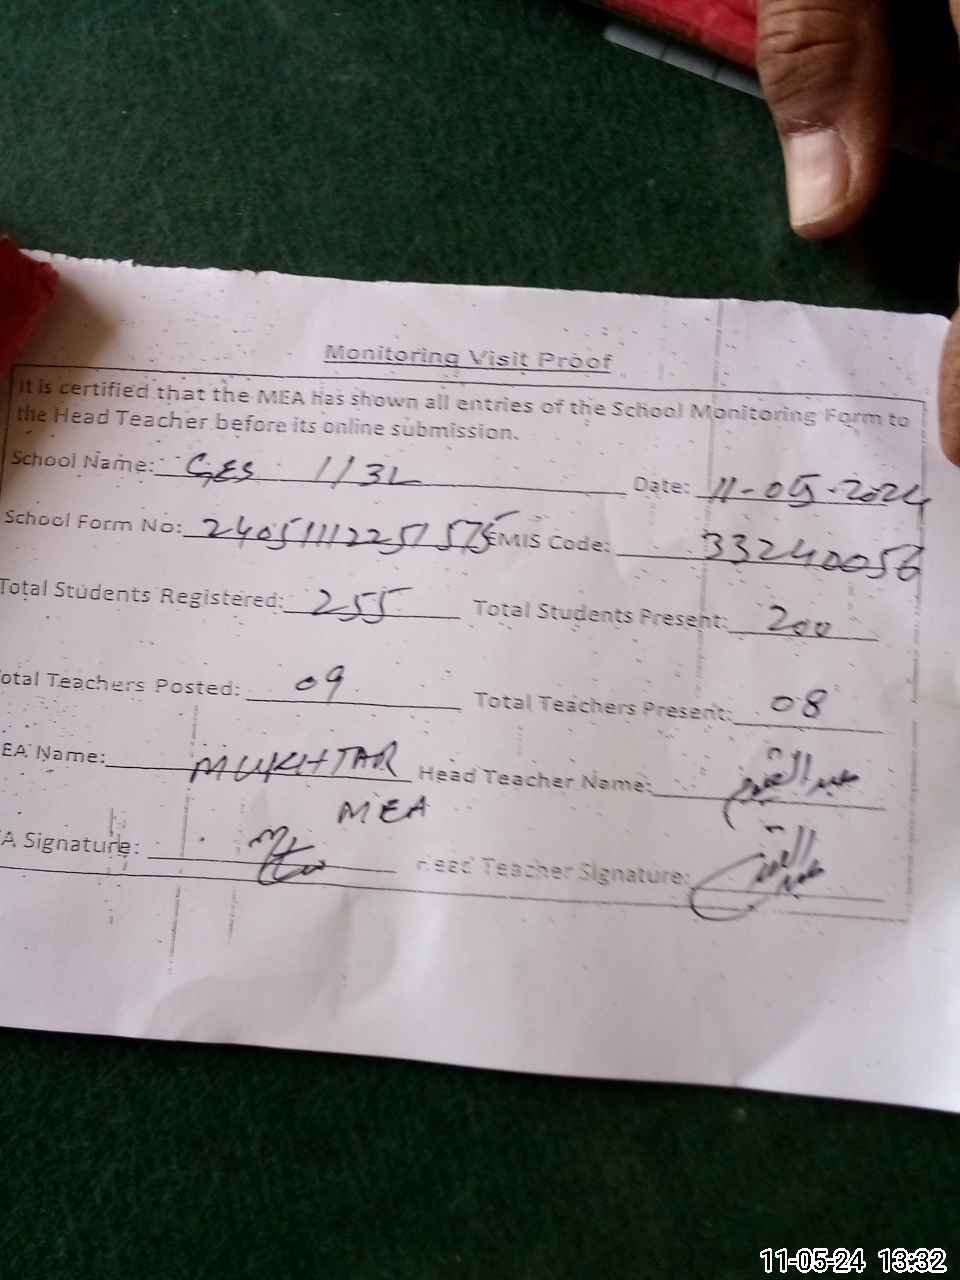 Monitoring Visit Proof
It is certified that the MEA has shown all entries of the School Monitoring Form to
the Head Teacher before its online submission.
School Name: GES 113L Date: 11-05-2024
School Form No: 24051112251575 EMIS Code: 33240056
Total Students Registered: 255 Total Students Present: 200
otal Teachers Posted: 09 Total Teachers Present: 08
EA Name: MUKHTAR Head Teacher Name: عبدالقیوم
MEA
A Signature: Head Teacher Signature: عبدالقیوم
11-05-24 13:32